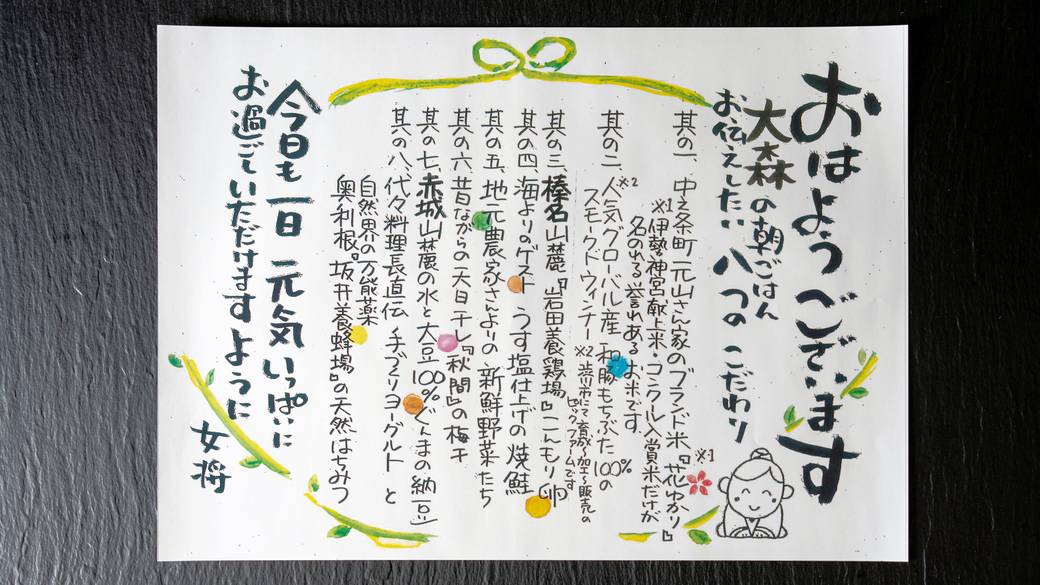 おはようございます
大森の朝ごはん
お伝えしたい 八つの こだわり
其の一、中之条町 元山さん家のブランド米『花ゆかり』※1
※1伊勢神宮献上米・コンクール入賞米だけが
名のれる 誉れある お米です。
其の二、人気グローバル産 和豚もちぶた 100%の
※2スモークドウィンナー ※2 渋川市にて育成〜加工〜販売の
ファームです
其の三、榛名山麓『岩田養鶏場』こんもり卵
其の四、海よりのゲスト うす塩仕上げの焼鮭
其の五、地元農家さんよりの 新鮮野菜たち
其の六、昔ながらの天日干し『秋間』の梅干
其の七、赤城山麓の水と大豆100%ぐんまの納豆
其の八、代々料理長直伝 手づくりヨーグルト と
自然界の万能薬
奥利根『坂井養蜂場』の天然はちみつ
今日も一日 元気いっぱいに
お過ごしいただけますように
女将